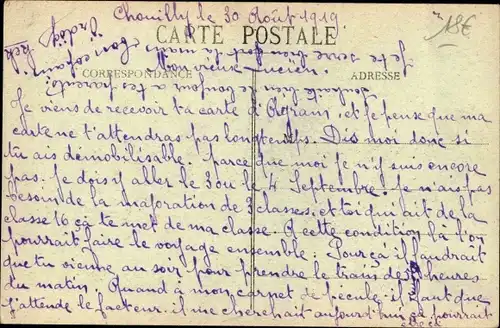 Chouilly le 30 Août 1919
CARTE POSTALE
18E
CORRESPONDANCE
ADRESSE
Mon vieux Lucien.
Je te serre bien fort la main
ton copain
Souhaite bien le bonjour à tes parents.
Je viens de recevoir ta carte d'  et je pense que ma
carte ne t'attendras pas longtemps. Dis moi donc si
tu ais démobilisable. parce que moi je n'y suis encore
pas. Je dois y aller le 3 ou le 4 Septembre. Je n'ais pas
besoin de la majoration de 3 classes, et toi qui ait de la
classe 16 ça te met de ma classe. A cette condition là l'on
pourrait faire le voyage ensemble. Pour ça il faudrait
que tu vienne au soir pour prendre le train de heures
du matin. Quand à mon carnet de pécule, il faut que
j'attende le facteur. il me cherchait aujourd'hui ça pourrait